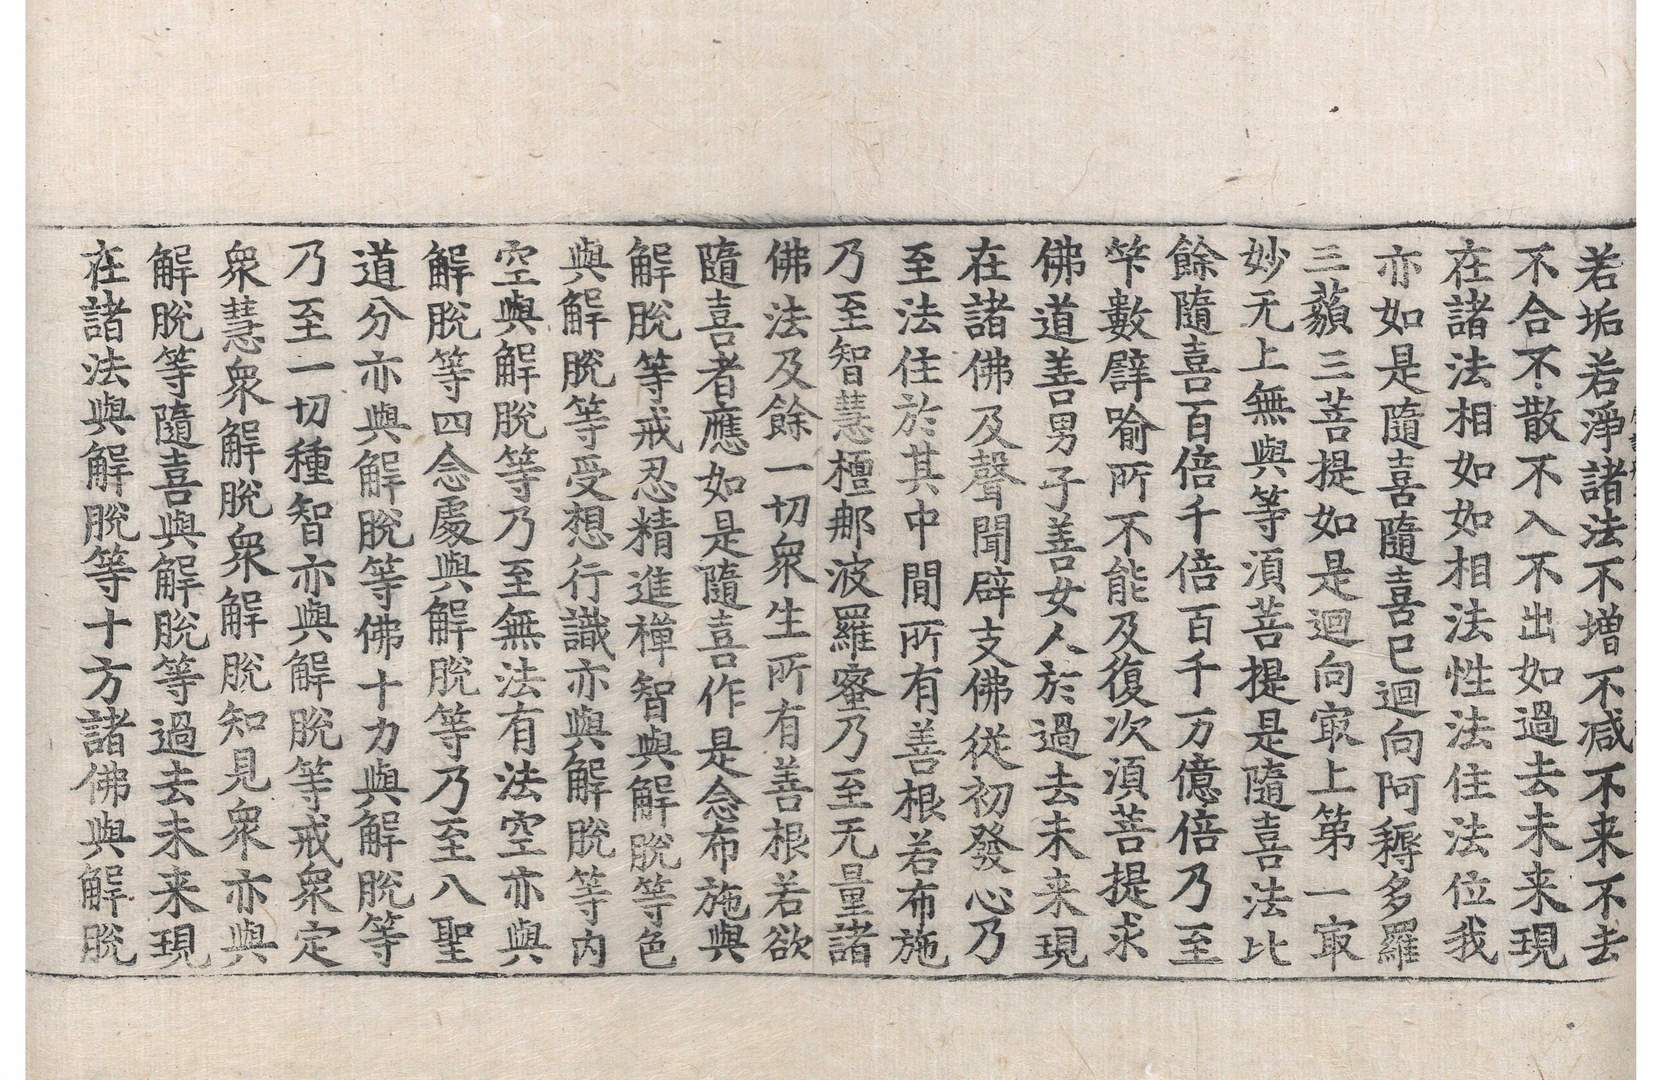 若垢若淨諸法不增不減不来不去
不合不散不入不出如過去未来現
在諸法相如如相法性法住法位我
亦如是隨喜隨喜已迴向阿耨多羅
三藐三菩提如是迴向㝡上第一㝡
妙无上無與等湏菩提是隨喜法比
餘隨喜百倍千倍百千万億倍乃至
筭數譬喻所不能及復次湏菩提求
佛道善男子善女人於過去未来現
在諸佛及聲聞辟支佛從初發心乃
至法住於其中間所有善根若布施
乃至智慧檀那波羅蜜乃至无量諸
佛法及餘一切衆生所有善根若欲
隨喜者應如是隨喜作是念布施與
解脫等戒忍精進禪智與解脫等色
與解脫等受想行識亦與解脫等内
空與解脫等乃至無法有法空亦與
解脫等四念處與解脫等乃至八聖
道分亦與解脫等佛十力與解脫等
乃至一切種智亦與解脫等戒衆定
衆慧衆解脫衆解脫知見衆亦與
解脫等隨喜與解脫等過去未来現
在諸法與解脫等十方諸佛與解脫